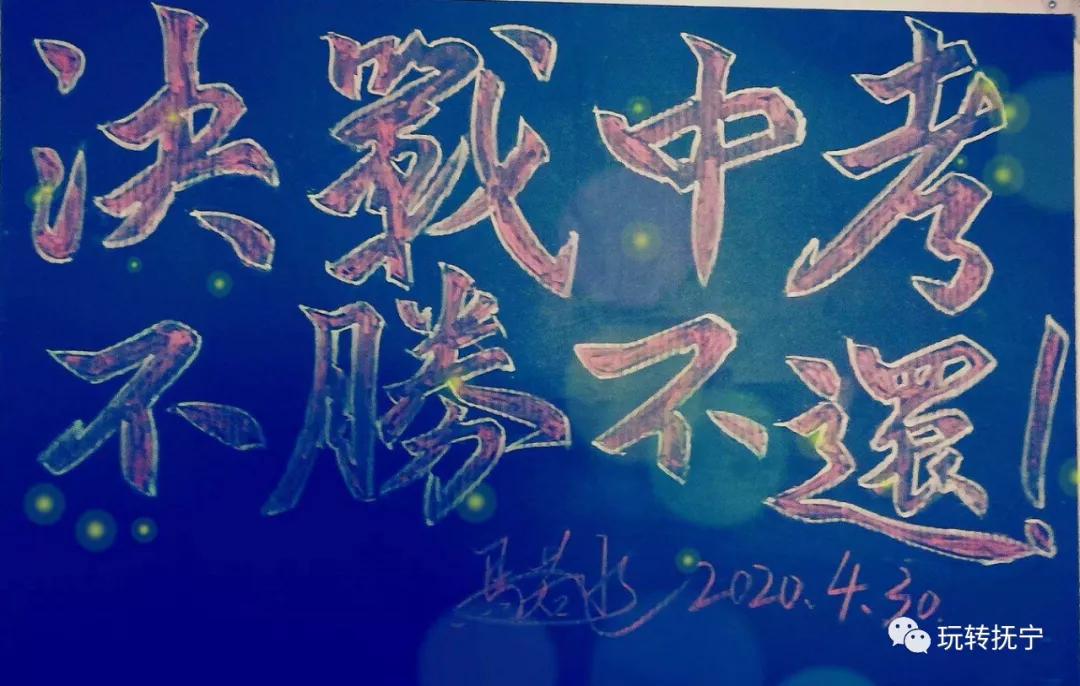 決戰中考
不勝不還!
馬若水 2020.4.30.
玩转抚宁